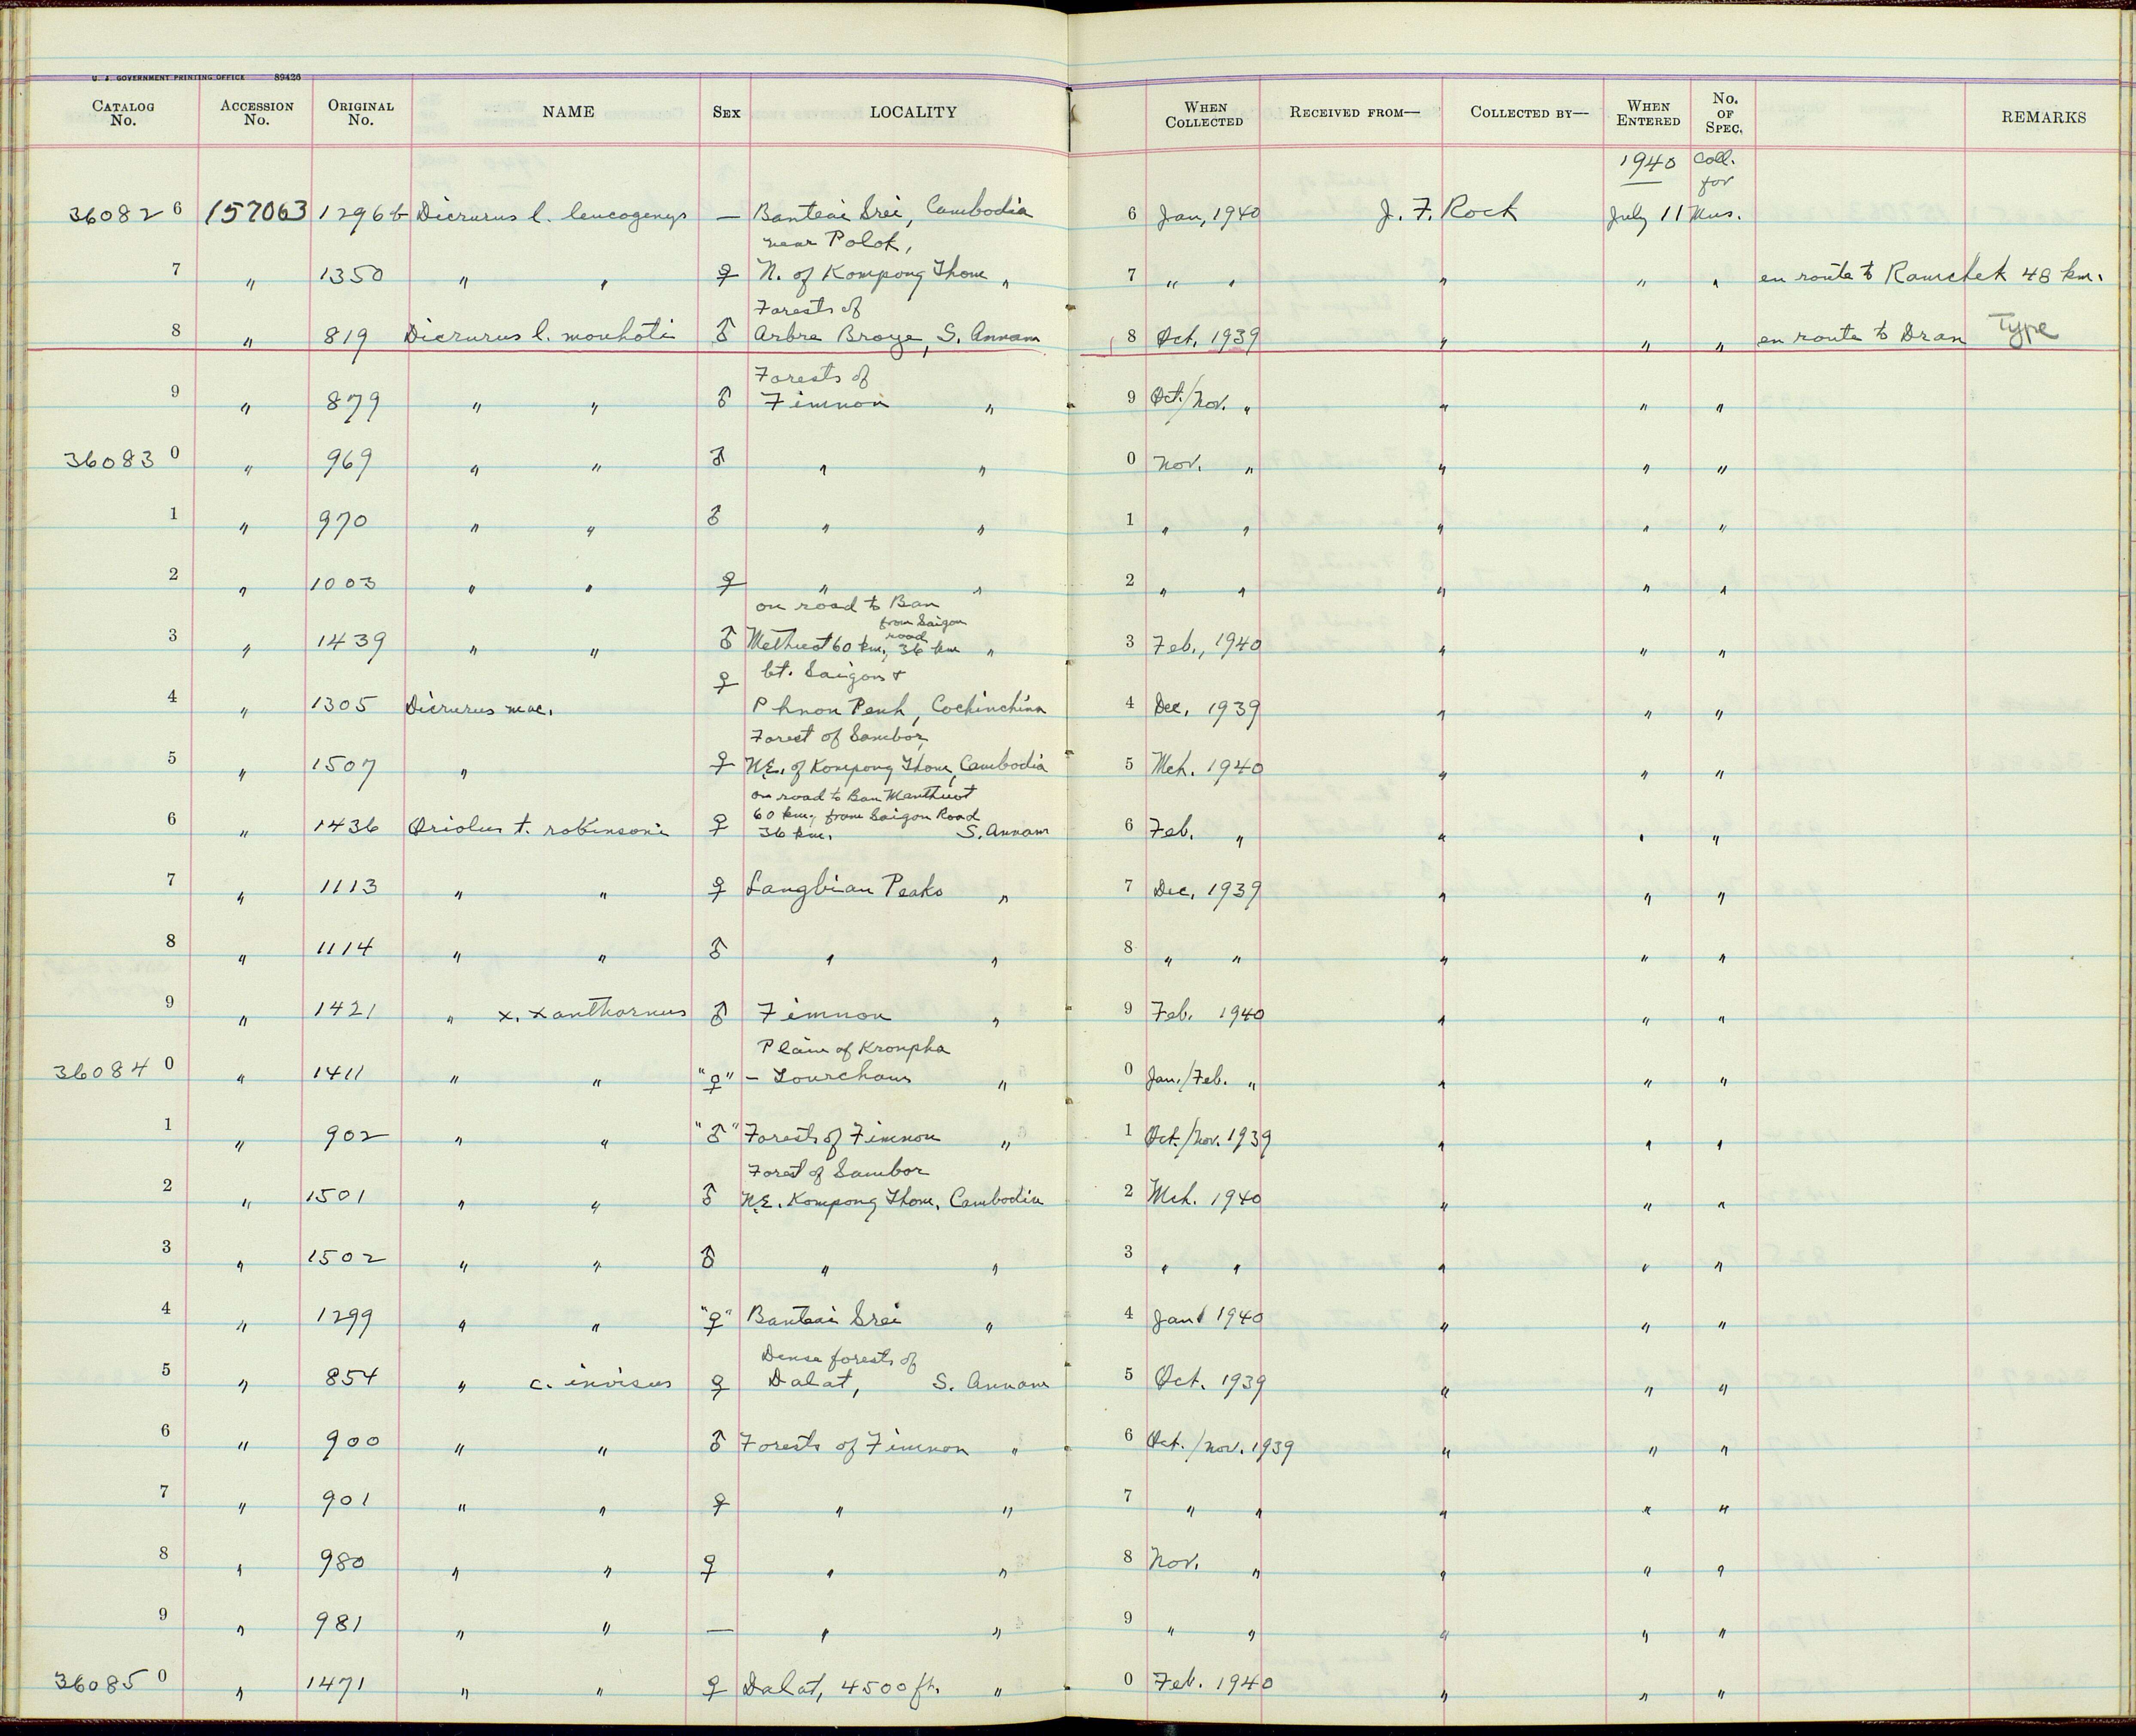 U. S. GOVERNMENT PRINTING OFFICE 89426
CATALOG No. ACCESSION No. ORIGINAL No. NAME SEX LOCALITY WHEN COLLECTED RECEIVED FROM— COLLECTED BY— WHEN ENTERED No. OF SPEC. REMARKS
1940 Coll.
for
360826 157063 1296b Dicrurus l. leucogenys — Banteai Srei, Cambodia 6 Jan, 1940 J. F. Rock July 11 Mus.
near Polok,
7 " 1350 " " ♀ N. of Kompong Thom " 7 " " " " " en route to Ramchek 48 km.
Forests of
8 " 819 Dicrurus l. mouhoti ♂ Arbre Broye, S. Annam 8 Oct. 1939 " " " en route to Dran Type
Forests of
9 " 879 " " ♂ Fimnon " 9 Oct./Nov. " " " "
360830 " 969 " " ♂ " " 0 Nov. " " " "
1 " 970 " " ♂ " " 1 " " " " "
2 " 1003 " " ♀ " " 2 " " " " "
on road to Ban
from Saigon
road
3 " 1439 " " ♂ Methuot 60 km, 36 km " 3 Feb., 1940 " " "
bt. Saigon +
4 " 1305 Dicrurus mac. ♀ Phnon Penh, Cochinchina 4 Dec, 1939 " " "
Forest of Sambor,
5 " 1507 " ♀ N.E. of Kompong Thom, Cambodia 5 Mch. 1940 " " "
on road to Ban Manthuot
60 km, from Saigon Road
6 " 1436 Oriolus t. robinsoni ♀ 36 km. S. Annam 6 Feb. " " " "
7 " 1113 " " ♀ Langbian Peaks " 7 Dec, 1939 " " "
8 " 1114 " " ♂ " " 8 " " " " "
9 " 1421 " x. xanthornus ♂ Fimnon " 9 Feb. 1940 " " "
Plain of Kronpha
360840 " 1411 " " "♀" - Lourchans " 0 Jan./Feb. " " " "
1 " 902 " " "♂" Forests of Fimnon " 1 Oct./Nov. 1939 " " "
Forest of Sambor
2 " 1501 " " ♂ N.E. Kompong Thom, Cambodia 2 Mch. 1940 " " "
3 " 1502 " " ♂ " " 3 " " " " "
4 " 1299 " " "♀" Banteai Srei " 4 Jan 1940 " " "
Dense forests of
5 " 854 " c. invisus ♀ Dalat, S. Annam 5 Oct. 1939 " " "
6 " 900 " " ♂ Forests of Fimnon " 6 Oct./Nov. 1939 " " "
7 " 901 " " ♀ " " 7 " " " " "
8 " 980 " " ♀ " " 8 Nov. " " " "
9 " 981 " " — " " 9 " " " " "
360850 " 1471 " " ♀ Dalat, 4500 ft. " 0 Feb. 1940 " " "